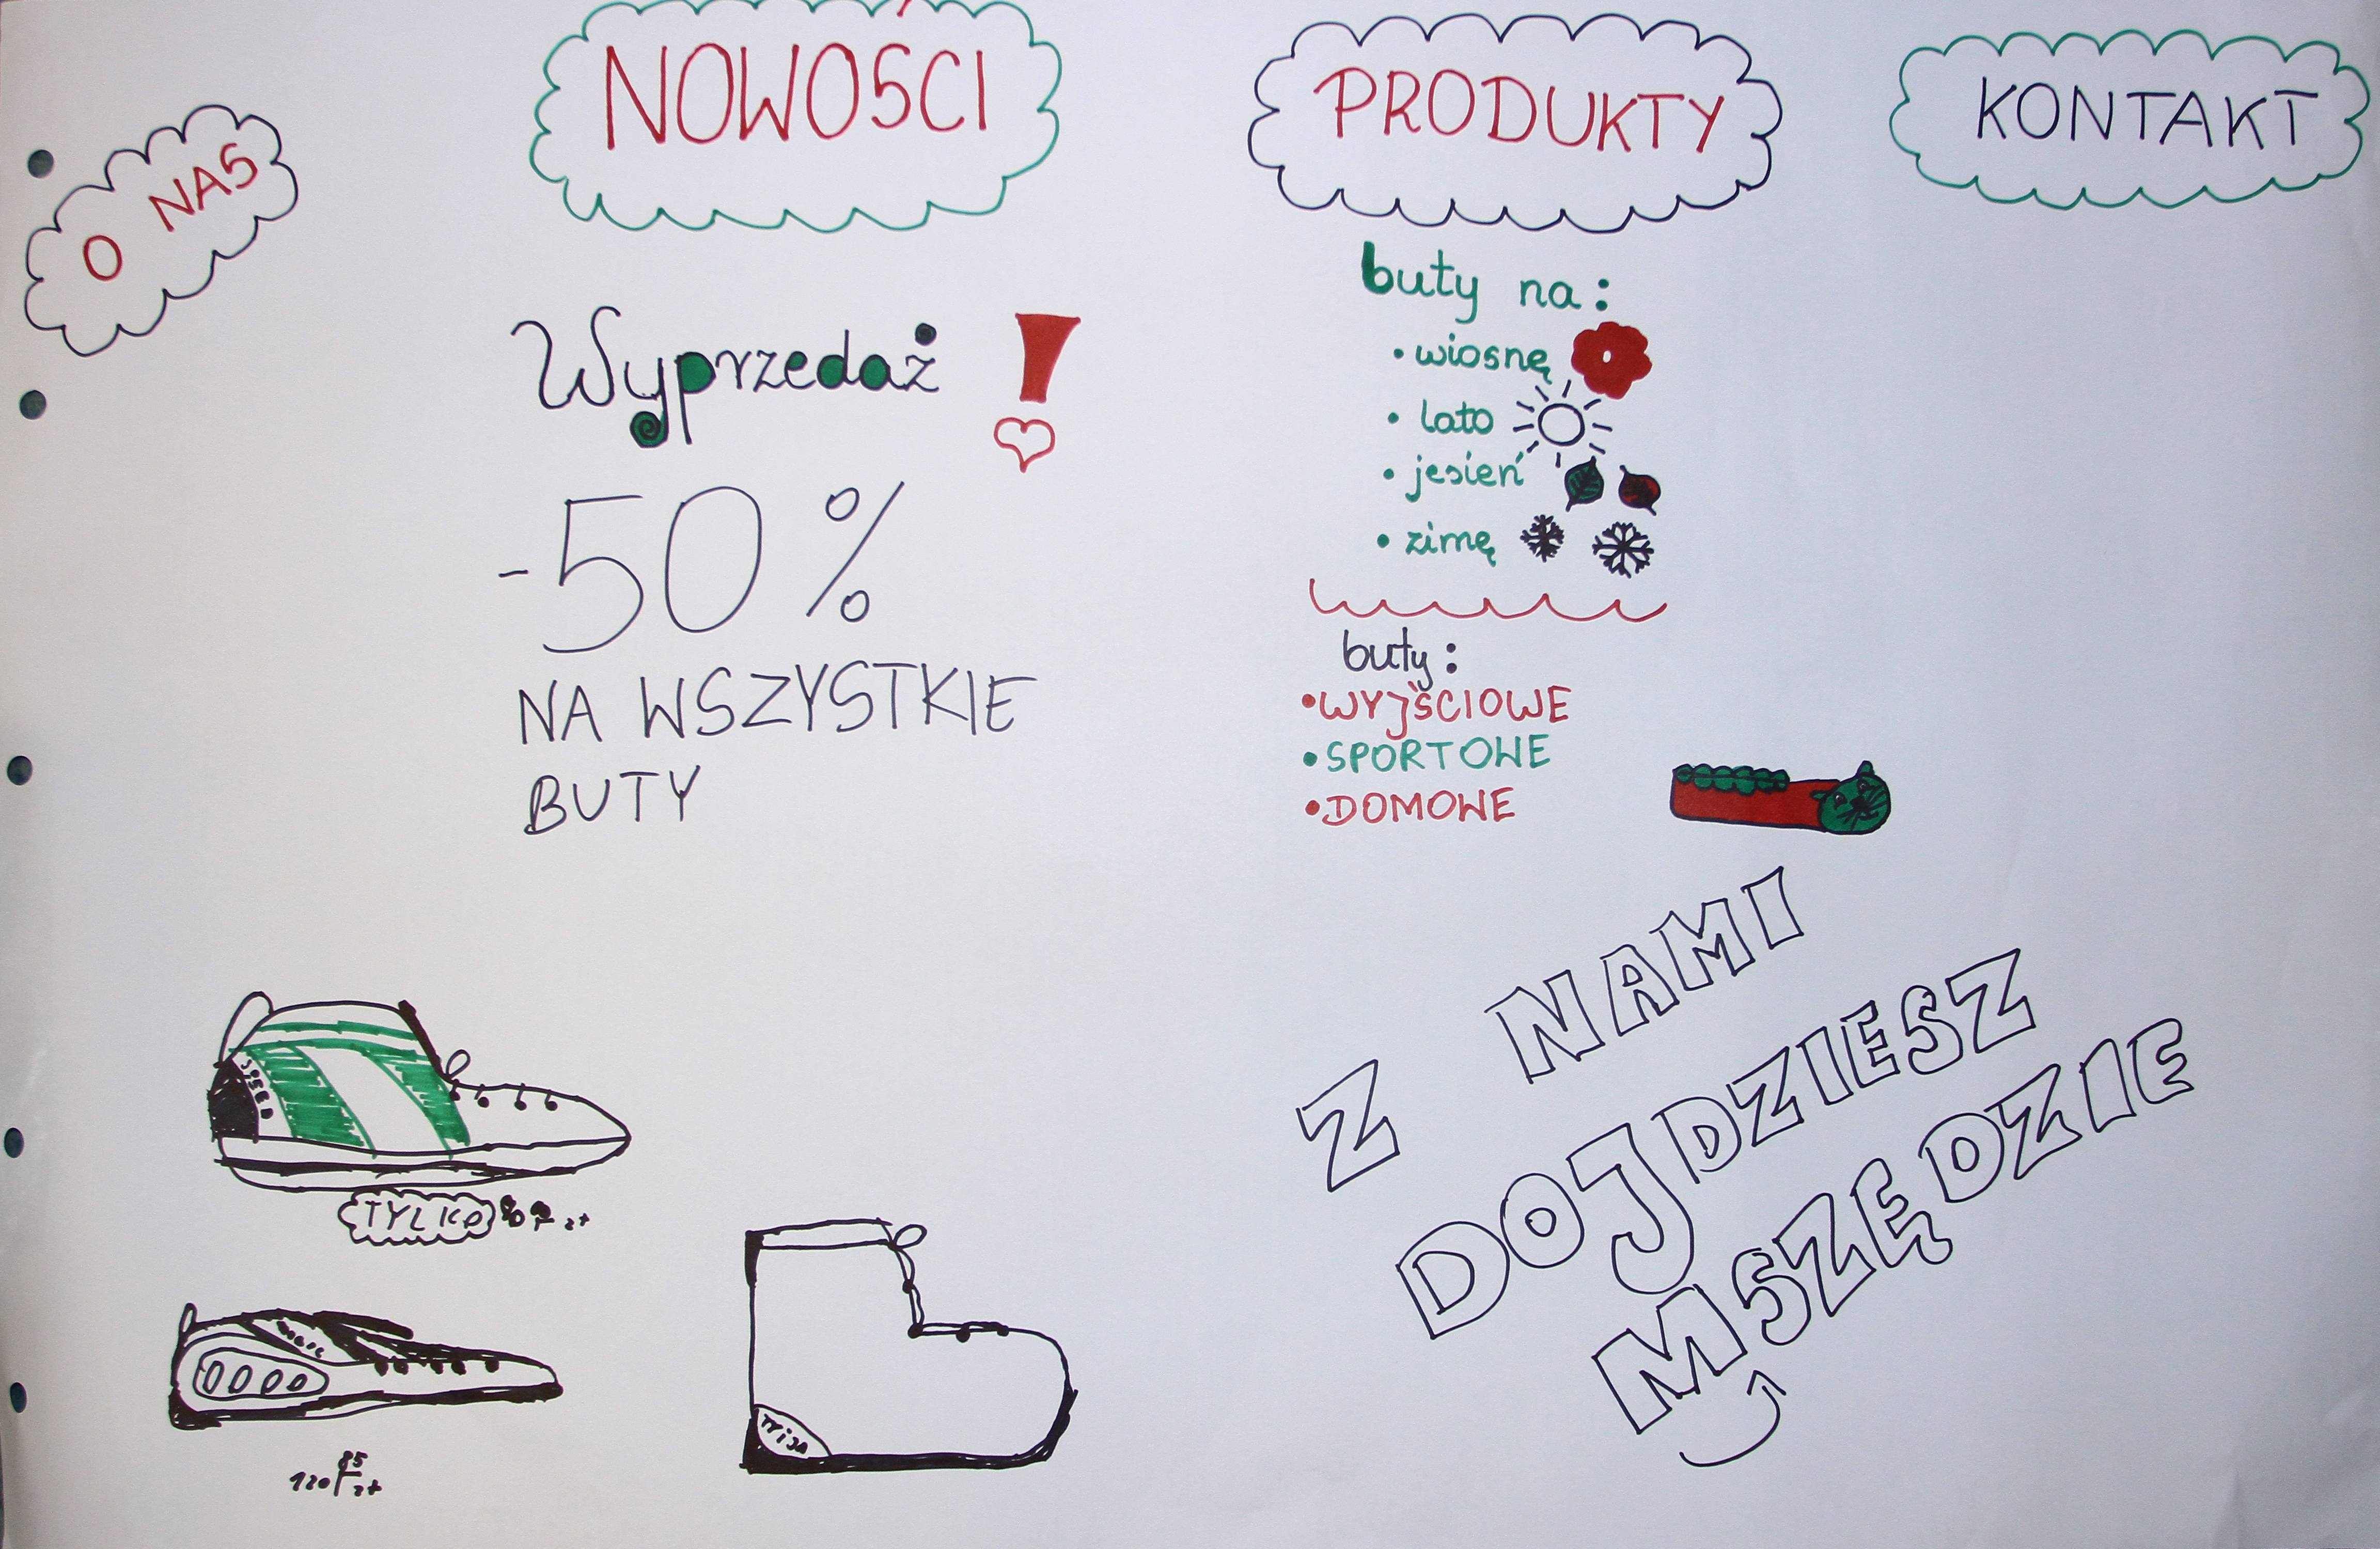 O NAS
NOWOŚCI
PRODUKTY
KONTAKT
Wyprzedaż !
-50 %
NA WSZYSTKIE
BUTY
buty na:
• wiosnę
• lato
• jesień
• zimę
buty:
• WYJŚCIOWE
• SPORTOWE
• DOMOWE
Z NAMI
DOJDZIESZ
WSZĘDZIE
SPEED
TYLKO
120 85 zł